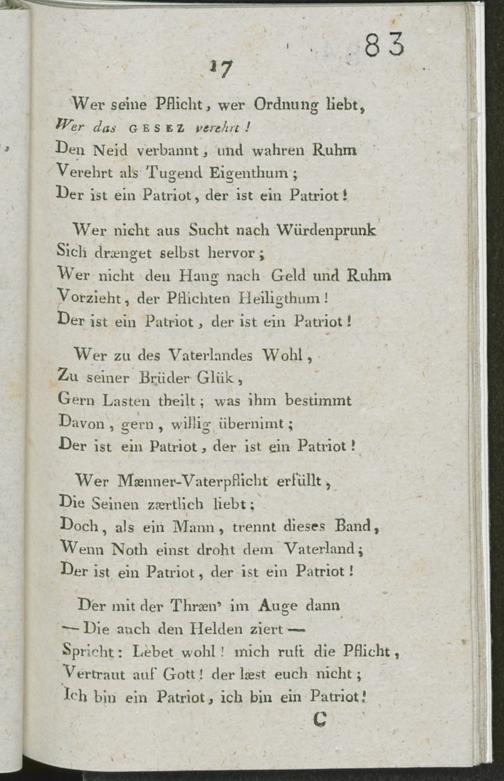 83
17
Wer seine Pflicht, wer Ordnung liebt,
Wer das GESEZ verehrt!
Den Neid verbannt, und wahren Ruhm
Verehrt als Tugend Eigenthum;
Der ist ein Patriot, der ist ein Patriot!
Wer nicht aus Sucht nach Würdenprunk
Sich drænget selbst hervor;
Wer nicht den Hang nach Geld und Ruhm
Vorzieht, der Pflichten Heiligthum!
Der ist ein Patriot, der ist ein Patriot!
Wer zu des Vaterlandes Wohl,
Zu seiner Brüder Glük,
Gern Lasten theilt; was ihm bestimmt
Davon, gern, willig übernimt;
Der ist ein Patriot, der ist ein Patriot!
Wer Mænner-Vaterpflicht erfüllt,
Die Seinen zærtlich liebt;
Doch, als ein Mann, trennt dieses Band,
Wenn Noth einst droht dem Vaterland;
Der ist ein Patriot, der ist ein Patriot!
Der mit der Thræn' im Auge dann
— Die auch den Helden ziert —
Spricht: Lebet wohl! mich ruft die Pflicht,
Vertraut auf Gott! der læst euch nicht;
Ich bin ein Patriot, ich bin ein Patriot!
C